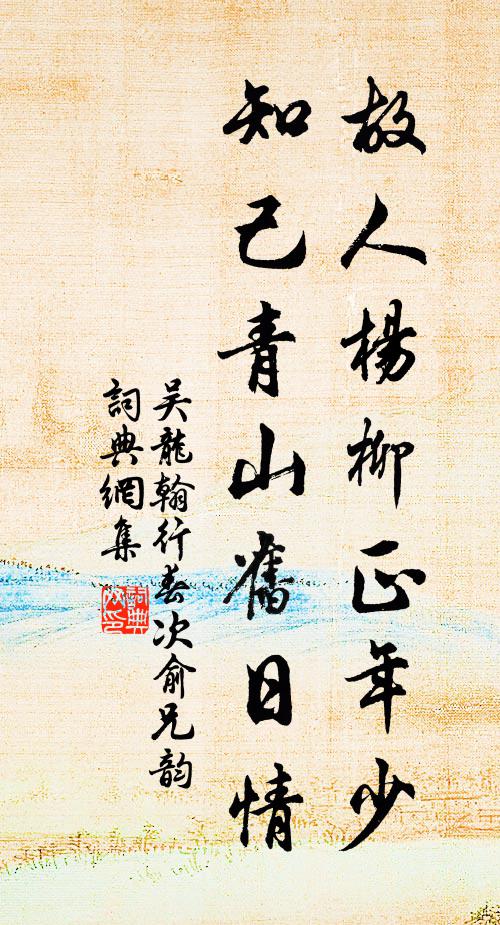 故人楊柳正年少
知己青山舊日情
吴龍翰行春次俞兄韵
詞典網集